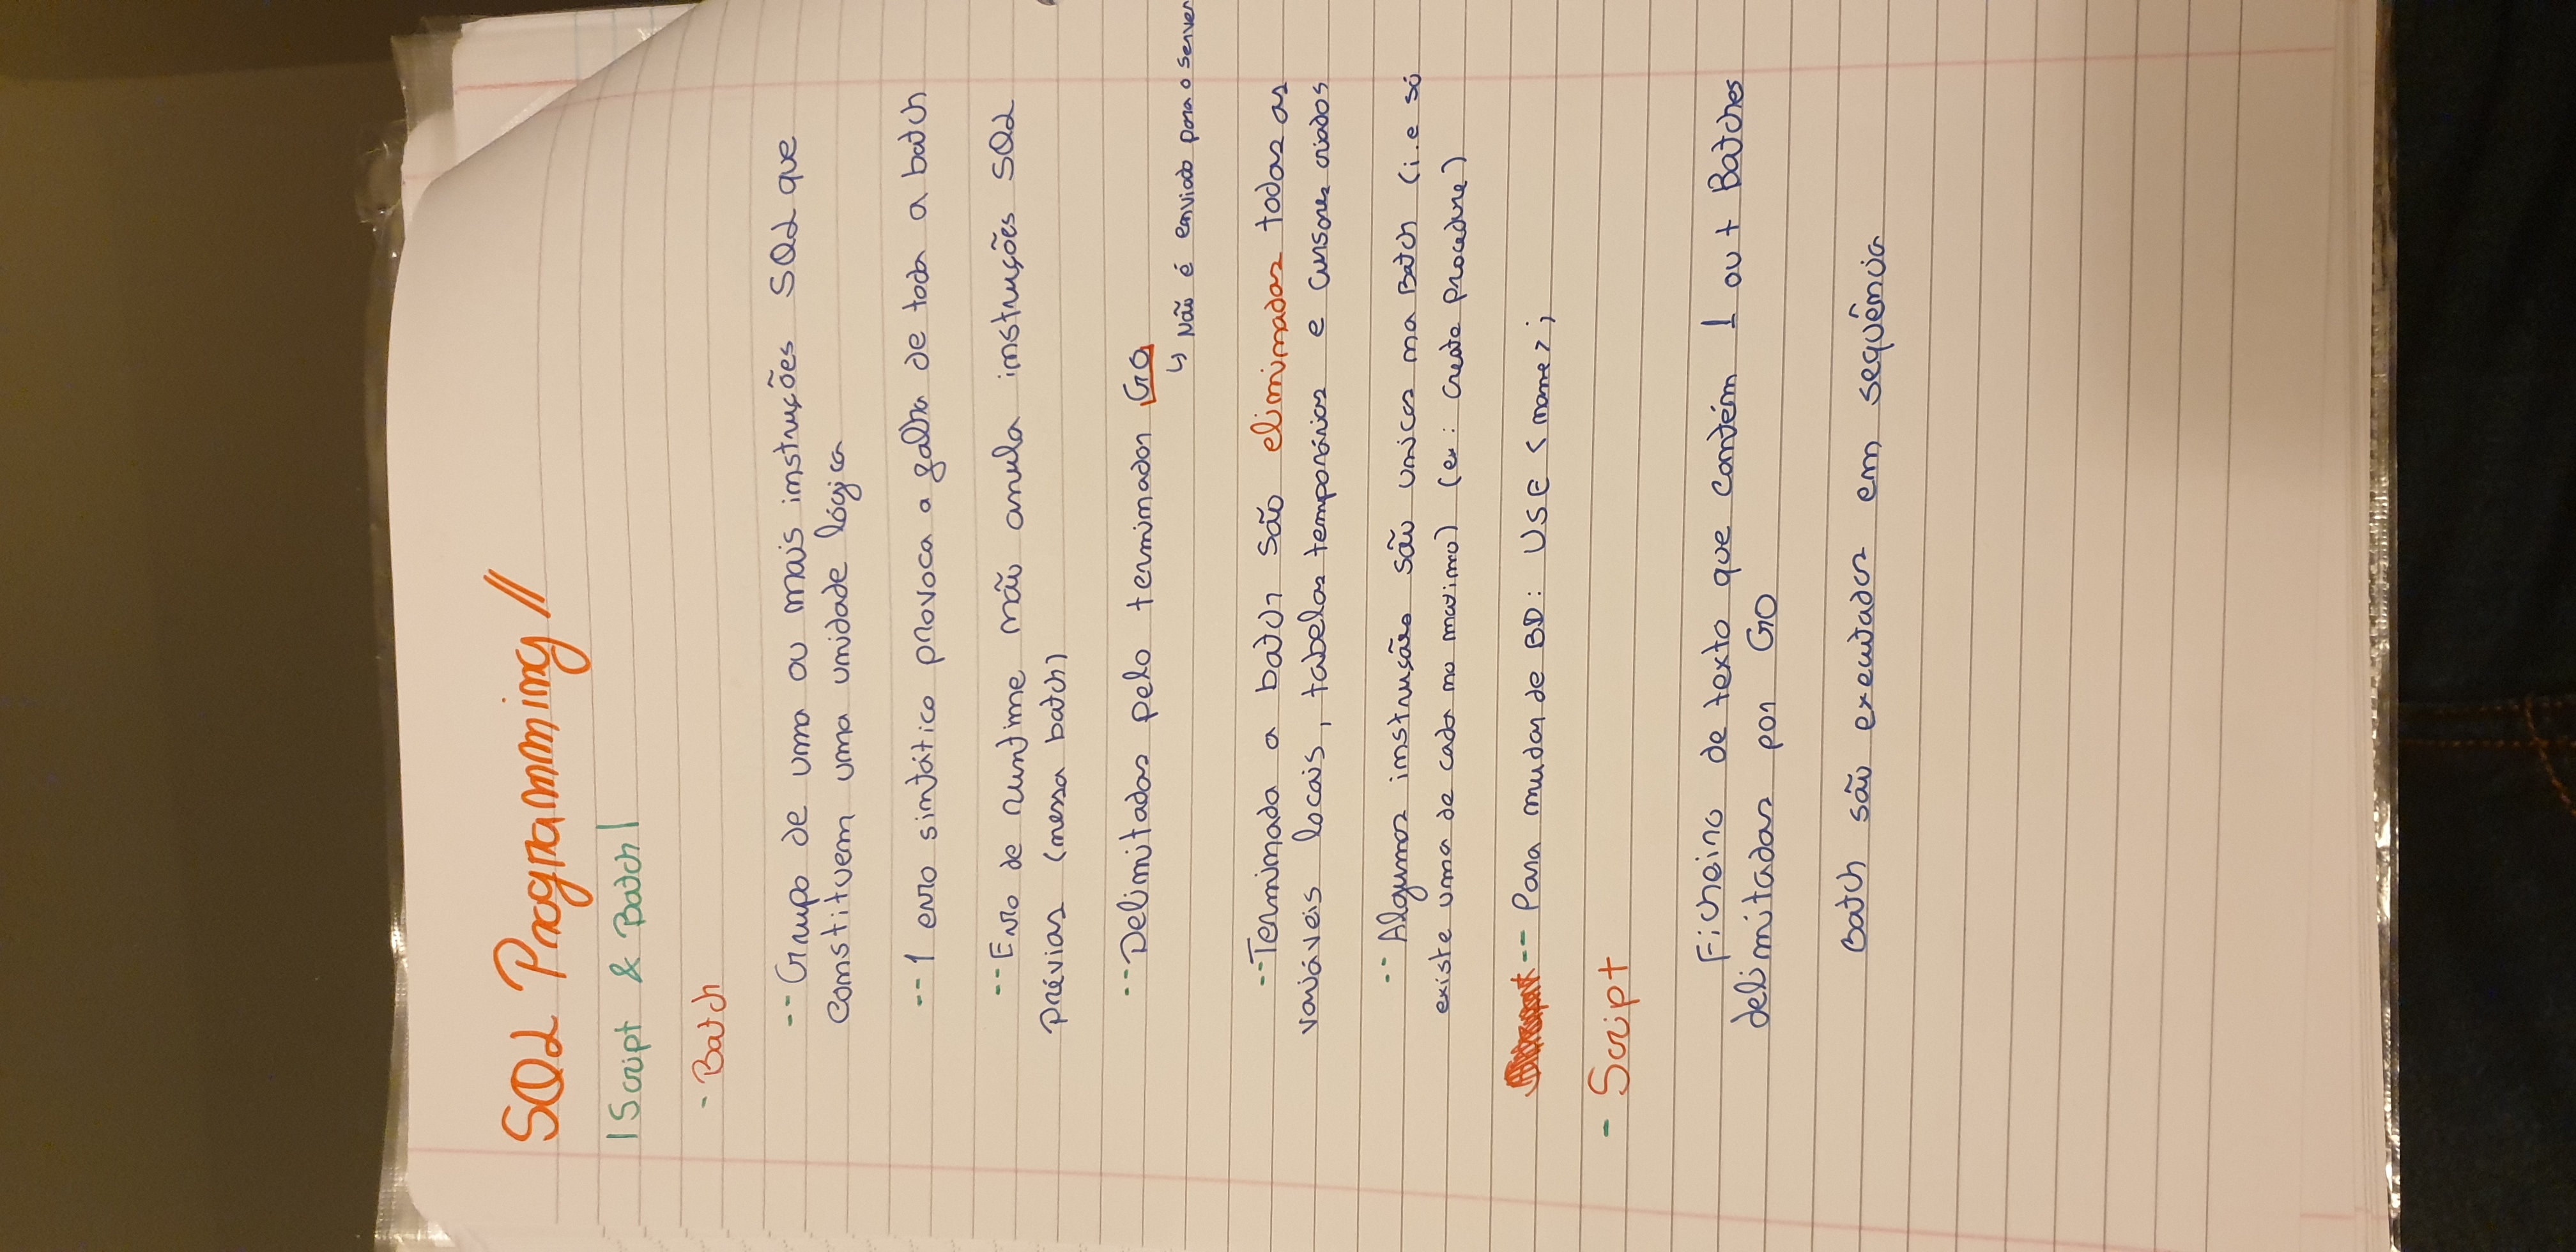 SQL Programming //
| Script & Batch |
- Batch
-- Grupo de uma ou mais instruções SQL que
constituem uma unidade lógica
-- 1 erro sintático provoca a falha de toda a batch
-- Erro de runtime não anula instruções SQL
prévias (nessa batch)
-- Delimitadas pelo terminador GO
↳ Não é enviado para o server
-- Terminada a batch são eliminadas todas as
variáveis locais, tabelas temporárias e cursores criados
-- Algumas instrusões são unicas na Batch (i.e só
existe uma de cada no maximo) (ex: Create Procedure)
-- Para mudar de BD: USE <name>;
- Script
Ficheiro de texto que contém 1 ou + Batches
delimitadas por GO
Batch são executadas em sequência